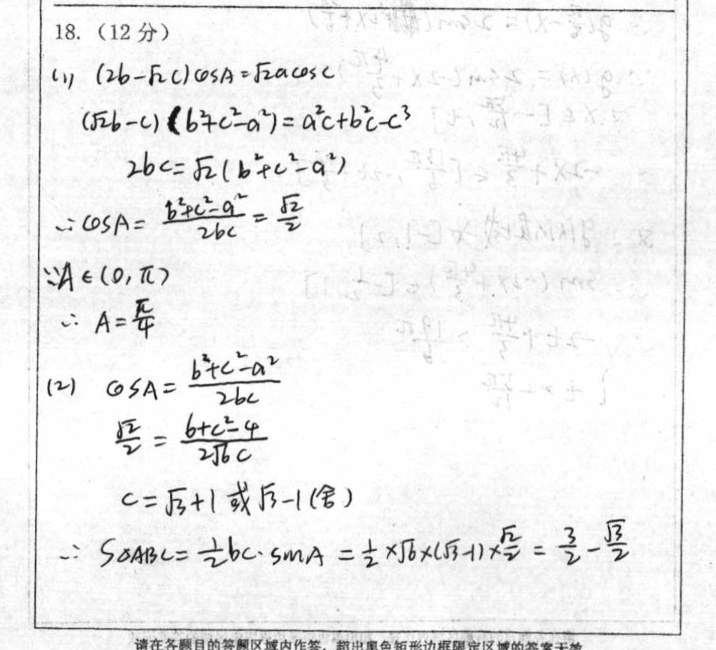 18.（12 分）
(1) (2b-√2c)cosA=√2acosc
(√2b-c)(b²+c²-a²)=a²c+b²c-c³
2bc=√2(b²+c²-a²)
∴cosA=(b²+c²-a²)/2bc=√2/2
∵A∈(0,π)
∴ A=π/4
(2) cosA=(b²+c²-a²)/2bc
√2/2=(6+c²-4)/2√6c
c=√3+1 或 √3-1(舍)
∴ S△ABC=1/2bc·sinA=1/2×√6×(√3-1)×√2/2=3/2-√3/2
请在各题目的答题区域内作答，超出黑色矩形边框限定区域的答案无效